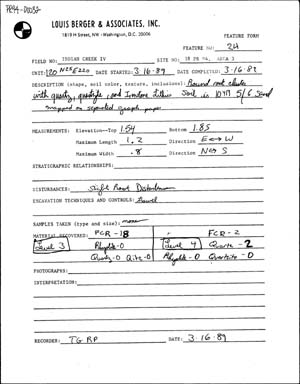 LOUIS BERGER & ASSOCIATES, INC.
1819 H Street, NW · Washington, D.C. 20006
FEATURE FORM
FEATURE NO: 24
FIELD NO: INDIAN CREEK IV SITE NO: 18 PR 94, AREA 3
UNIT: DATE STARTED: 3-16-89 DATE COMPLETED: 3-16-89
DESCRIPTION (shape, soil color, texture, inclusions): Round rock cluster
with quartz, quartzite, and Soil is 10YR 5/6 Sand
mapped on separated graph paper
MEASUREMENTS: Elevation--Top 1.54 Bottom 1.85
Maximum Length 1.2 Direction E↔W
Maximum Width .8 Direction N↔S
STRATIGRAPHIC RELATIONSHIPS:
DISTURBANCES: Slight Root Disturbance
EXCAVATION TECHNIQUES AND CONTROLS: Trowel
SAMPLES TAKEN (type and size): none
MATERIAL RECOVERED: FCR-18 FCR-2
Level 3 Rhyolite-0 Level 4 Quartz-2
Quartz-0 Qite-0 Rhyolite-0 Quartzite-0
PHOTOGRAPHS:
INTERPRETATION:
RECORDER: TG RP DATE: 3-16-89